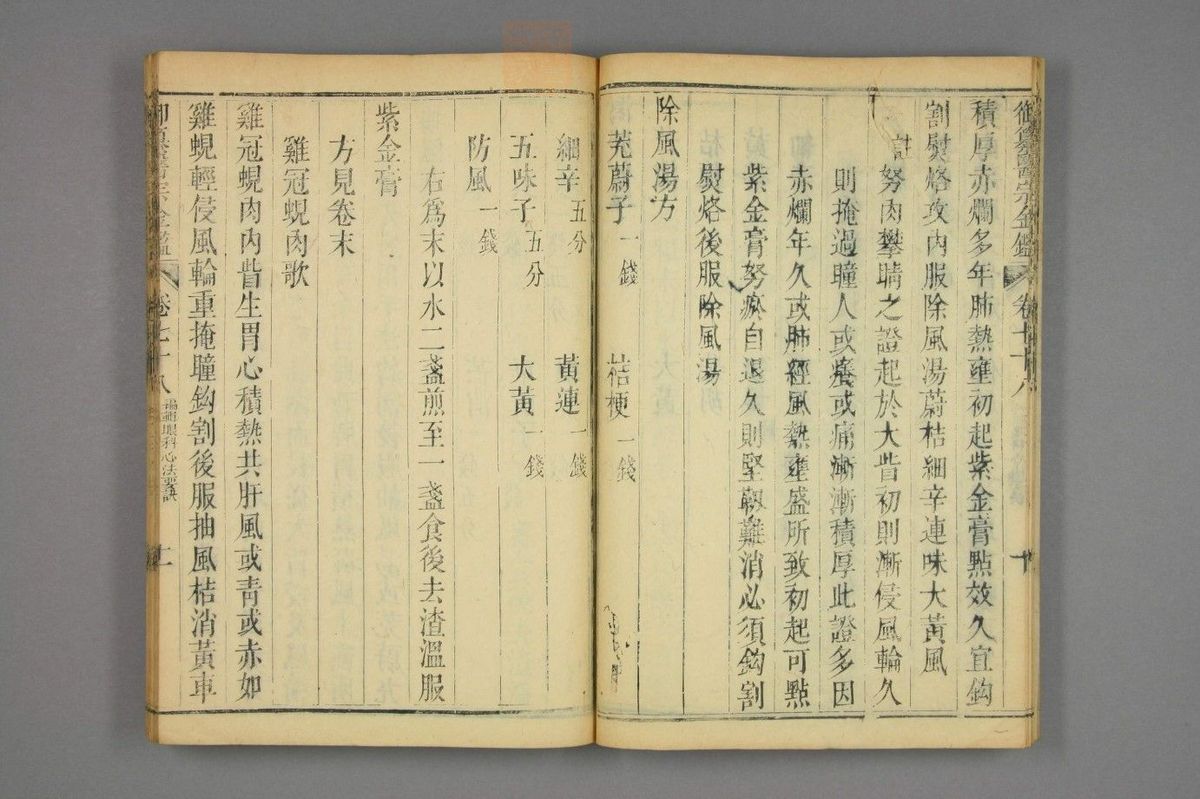 御纂醫宗金鑑 卷七十八 十
積厚赤爛多年肺熱壅初起紫金膏點效久宜鈎
割熨烙攻內服除風湯蔚桔細辛連味大黃風
註 努肉攀睛之證起於大眥初則漸侵風輪久
則掩過瞳人或癢或痛漸漸積厚此證多因
赤爛年久或肺經風熱壅盛所致初起可點
紫金膏努瘀自退久則堅韌難消必須鈎割
熨烙後服除風湯
除風湯方
茺蔚子 一錢 桔梗 一錢
細辛 五分 黃連 一錢
五味子 五分 大黃 一錢
防風 一錢
右爲末以水二盞煎至一盞食後去渣溫服
紫金膏
方見卷末
雞冠蜆肉歌
雞冠蜆肉內眥生胃心積熱共肝風或靑或赤如
雞蜆輕侵風輪重掩瞳鈎割後服抽風桔消黃車
御纂醫宗金鑑 卷七十八 編輯眼科心法要訣 十一